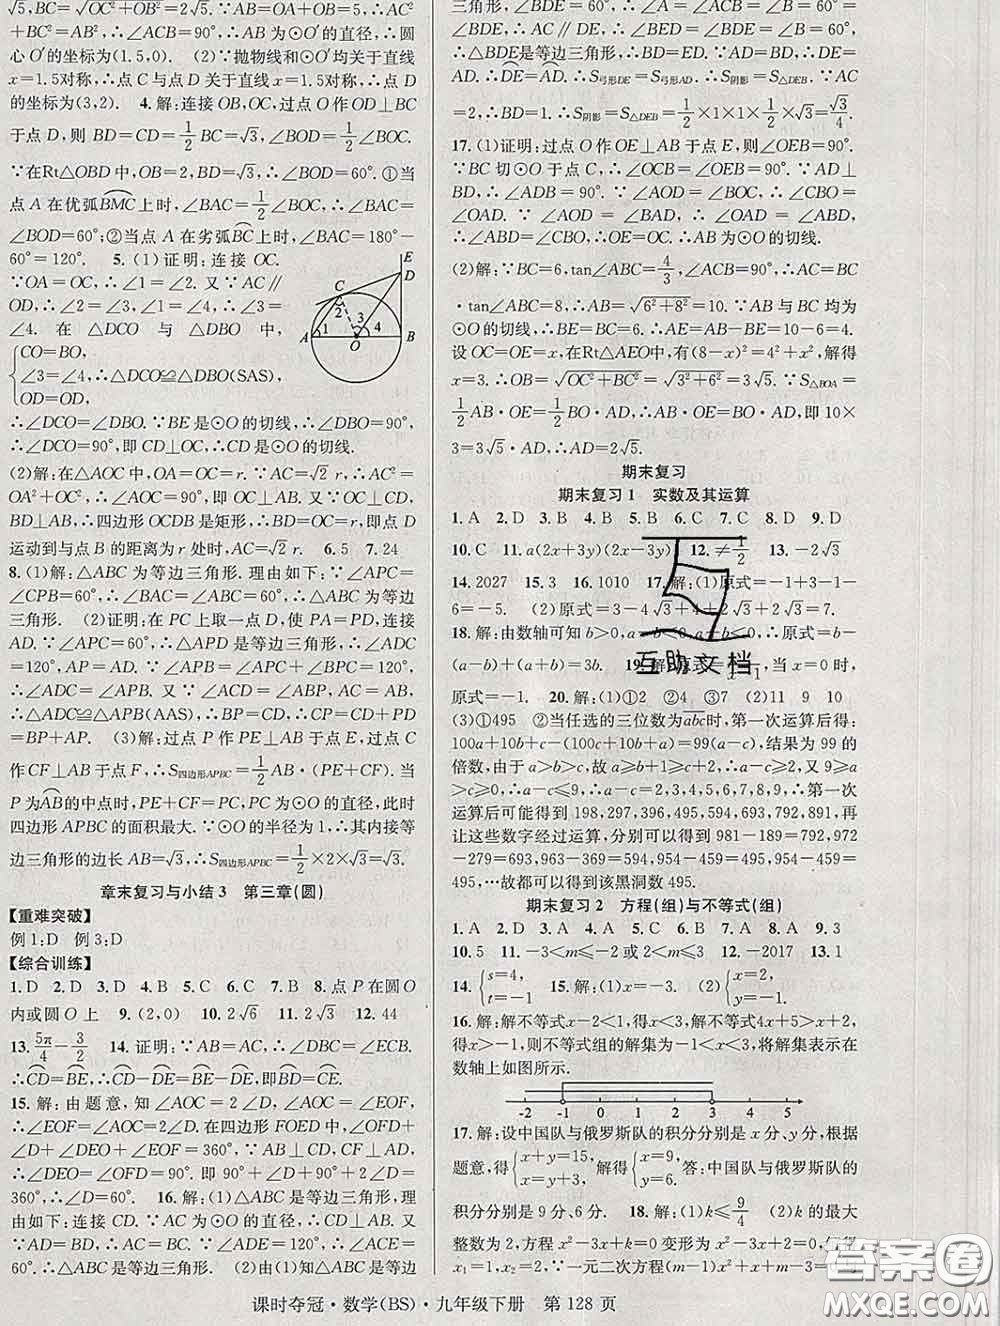 √5,BC=√(OC²+OB²)=2√5. ∵AC²+BC²=25,
=AB²,∴∠ACB=90°,∴AB为⊙O′的直径,∴圆
心O′的坐标为(1.5,0). (2)∵抛物线和⊙O′均关于直线
x=1.5对称,∴点C与点D关于直线x=1.5对称,∴点D
的坐标为(3,2). 4.解:连接OB,OC,过点O作OD⊥BC
于点D,则BD=CD=1/2BC=√3,∠BOD=1/2∠BOC.
∵在Rt△OBD中,OB=2,BD=√3,∴∠BOD=60°.①当
点A在优弧BMC上时,∠BAC=1/2∠BOC,∴∠BAC=
∠BOD=60°;②当点A在劣弧BC上时,∠BAC=180°-
60°=120°. 5.(1)证明:连接OC.
∵OA=OC,∴∠1=∠2.又∵AC∥
OD,∴∠1=∠4,∠2=∠3,∴∠3=
∠4.在△DCO与△DBO中,
{CO=BO,
∠3=∠4,∴△DCO≌△DBO(SAS),
OD=OD,
∴∠DCO=∠DBO.∵BE是⊙O的切线,∴∠DBO=
90°,∴∠DCO=90°,即CD⊥OC,∴CD是⊙O的切线.
(2)解:在△AOC中,OA=OC=r.∵AC=√2r,∴OA²+
OC²=AC²,∴∠AOC=90°,∴OC⊥AB.又∵CD⊥OC,
BD⊥AB,∴四边形OCDB是矩形,∴BD=OC=r,即点D
运动到与点B的距离为r处时,AC=√2r. 6.5 7.24
8.(1)解:△ABC为等边三角形.理由如下:∵∠APC=
∠CPB=60°,∴∠BAC=∠ABC=60°,∴△ABC为等边
三角形. (2)证明:在PC上取一点D,使PA=PD,连接
AD.∵∠APC=60°,∴△PAD是等边三角形,∴∠ADC=
120°,AP=AD.∵∠APB=∠APC+∠BPC=120°,
∴∠ADC=∠APB.又∵∠ACP=∠ABP,AP=AD,
∴△ADC≌△APB(AAS),∴BP=CD,∴CP=CD+PD
=BP+AP. (3)解:过点P作PE⊥AB于点E,过点C
作CF⊥AB于点F,∴S四边形APBC=1/2AB×(PE+CF).当
P为AB的中点时,PE+CF=PC,PC为⊙O的直径,此时
四边形APBC的面积最大.∵⊙O的半径为1,∴其内接等
边三角形的边长AB=√3,∴S四边形APBC=1/2×2×√3=√3.
章末复习与小结3 第三章(圆)
【重难突破】
例1:D 例3:D
【综合训练】
1.D 2.D 3.D 4.B 5.C 6.B 7.B 8.点P在圆O
内或圆O上 9.(2,0) 10.2√6 11.2√2 12.44
13.5π/4-3/2 14.证明:∵AB=AC,∴∠DBC=∠ECB.
∴CD=BE,∴CD-DE=BE-DE,即BD=CE.
15.解:由题意,知∠AOC=2∠D,∠AOC=∠EOF,
∴∠EOF=∠AOC=2∠D.在四边形FOED中,∠OFD+
∠D+∠DEO+∠EOF=360°,∴90°+∠D+90°+2∠D=
360°,∴∠D=60°. 16.解:(1)△ABC是等边三角形,理
由如下:连接CD.∵AC为⊙O的直径,∴CD⊥AB.又
∵AD=BD,∴AC=BC.∵∠ADE=120°,∴∠ACE=
60°,∴△ABC是等边三角形. (2)由(1)知△ABC是等边
三角形,∴∠BDE=60°,∴∠BDE=∠B=60°,
∴△BDE是等边三角形,∴DE=BD.∵AD=BD,∴DE=
AD,∴DE=AD.∴S弓形DE=S弓形AD,∴S阴影=S△DEB.∵AC
=2,∴BD=1.∴S阴影=S△DEB=1/2×1×1×√3/2=√3/4.
17.(1)证明:过点O作OE⊥AB于点E,则∠BEO=90°.
∵BC切⊙O于点C,∴∠OCB=∠BEO=90°.∵AD⊥
BD,∴∠D=90°.∵∠AOD=∠BOC,∴∠CBO=
∠OAD.∵∠ABO=∠OAD,∴∠CBO=∠ABO.∵OC⊥
BC,OE⊥AB,∴OE=OC,∴AB为⊙O的切线.
(2)解:∵BC=6,tan∠ABC=4/3,∠ACB=90°,∴AC=BC
·tan∠ABC=8,∴AB=√(6²+8²)=10.∵AB与BC均为
⊙O的切线,∴BE=BC=6.∴AE=AB-BE=10-6=4.
设OC=OE=x,在Rt△AEO中,有(8-x)²=4²+x²,解得
x=3.∴OB=√(OC²+BC²)=√(3²+6²)=3√5.∵S△BOA=
1/2AB·OE=1/2OB·AD,∴AB·OE=OB·AD,即10×
3=3√5·AD,∴AD=2√5.
期末复习
期末复习1 实数及其运算
1.A 2.D 3.B 4.B 5.B 6.C 7.C 8.D 9.D
10.C 11.a(2x+3y)(2x-3y) 12.≠1/2 13.-2√3
14.2027 15.3 16.1010 17.解:(1)原式=-1+3-1-
6=-5. (2)原式=3-4√3+4+2√3+2√3=7.
18.解:由数轴可知b>0,a-b<0,a+b<0,∴原式=b-
(a-b)+(a+b)=3b. 19.解:原式= ,当x=0时,
原式=-1. 20.解:(1)①2 ②4 ③7 (2)11 9 10
(3)①495 ②当任选的三位数为abc时,第一次运算后得:
100a+10b+c-(100c+10b+a)=99(a-c),结果为99的
倍数,由于a>b>c,故a≥b+1≥c+2,∴a-c≥2,又9≥
a>c≥0,∴a-c≤9,∴a-c=2,3,4,5,6,7,8,9,∴第一次
运算后可能得到198,297,396,495,594,693,792,891,再
让这些数字经过运算,分别可以得到981-189=792,972
-279=693,963-369=594,954-459=495,954-459=
495,…故都可以得到该黑洞数495.
期末复习2 方程(组)与不等式(组)
1.A 2.D 3.D 4.A 5.C 6.B 7.B 8.A 9.3
10.5 11.-3<m≤-2或2<m≤3 12.-2017 13.1
14.{s=4, t=-1 15.解:(1)x=-3. (2){x=2, y=-1.
16.解:解不等式x-2<1,得x<3,解不等式4x+5>x+2,
得x>-1,则不等式组的解集为-1<x<3,将解集表示在
数轴上如图所示.
-2 -1 0 1 2 3 4 5
17.解:设中国队与俄罗斯队的积分分别是x分、y分,根据
题意,得{x+y=15, x=y+3, 解得{x=9, y=6. 答:中国队与俄罗斯队的
积分分别是9分、6分. 18.解:(1)k≤9/4 (2)k的最大
整数为2,方程x²-3x+k=0变形为x²-3x+2=0,解得
x₁=1,x₂=2.∵一元二次方程
互助文档
答案圈
MXQE.COM
课时夺冠·数学(BS)·九年级下册 第128页